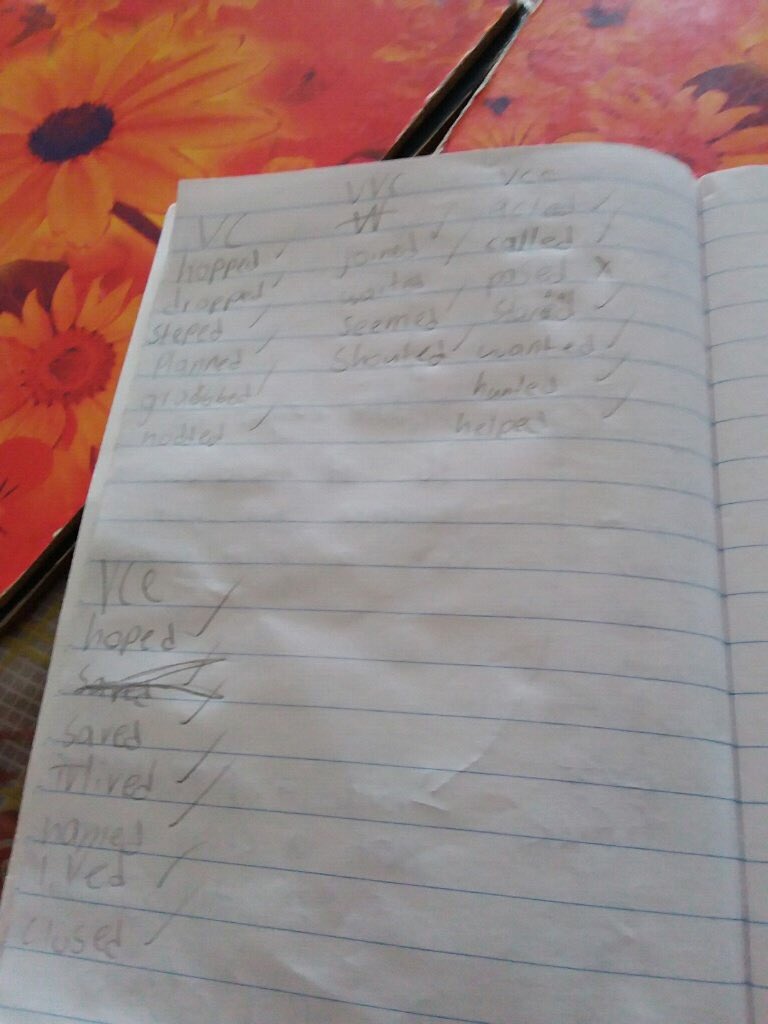 VC
hopped
dropped
steped
planned
grabbed
nodded
VVC
joined
waited
seemed
shouted
VCC
acted
called
wanted
hunted
helped
VCe
hoped
saved
named
lived
closed